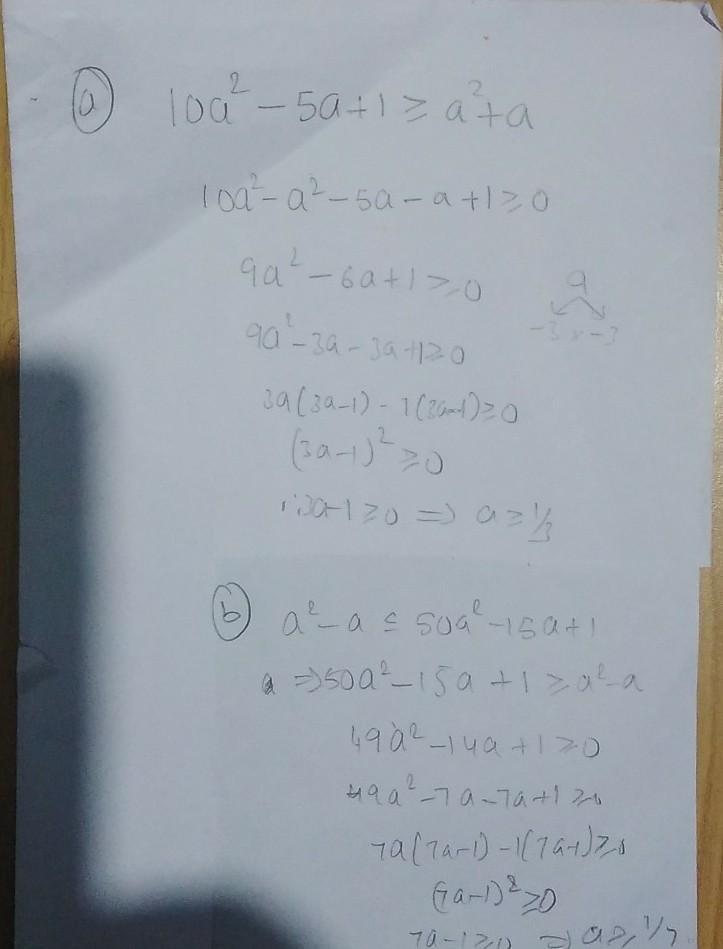 (a) 10a² - 5a + 1 ≥ a² + a
10a² - a² - 5a - a + 1 ≥ 0
9a² - 6a + 1 ≥ 0
9
-3 × -3
9a² - 3a - 3a + 1 ≥ 0
3a(3a-1) - 1(3a-1) ≥ 0
(3a-1)² ≥ 0
∴ 3a-1 ≥ 0 ⇒ a ≥ 1/3
(b) a² - a ≤ 50a² - 15a + 1
⇒ 50a² - 15a + 1 ≥ a² - a
49a² - 14a + 1 ≥ 0
49a² - 7a - 7a + 1 ≥ 0
7a(7a-1) - 1(7a-1) ≥ 0
(7a-1)² ≥ 0
7a - 1 ≥ 0 ⇒ a ≥ 1/7